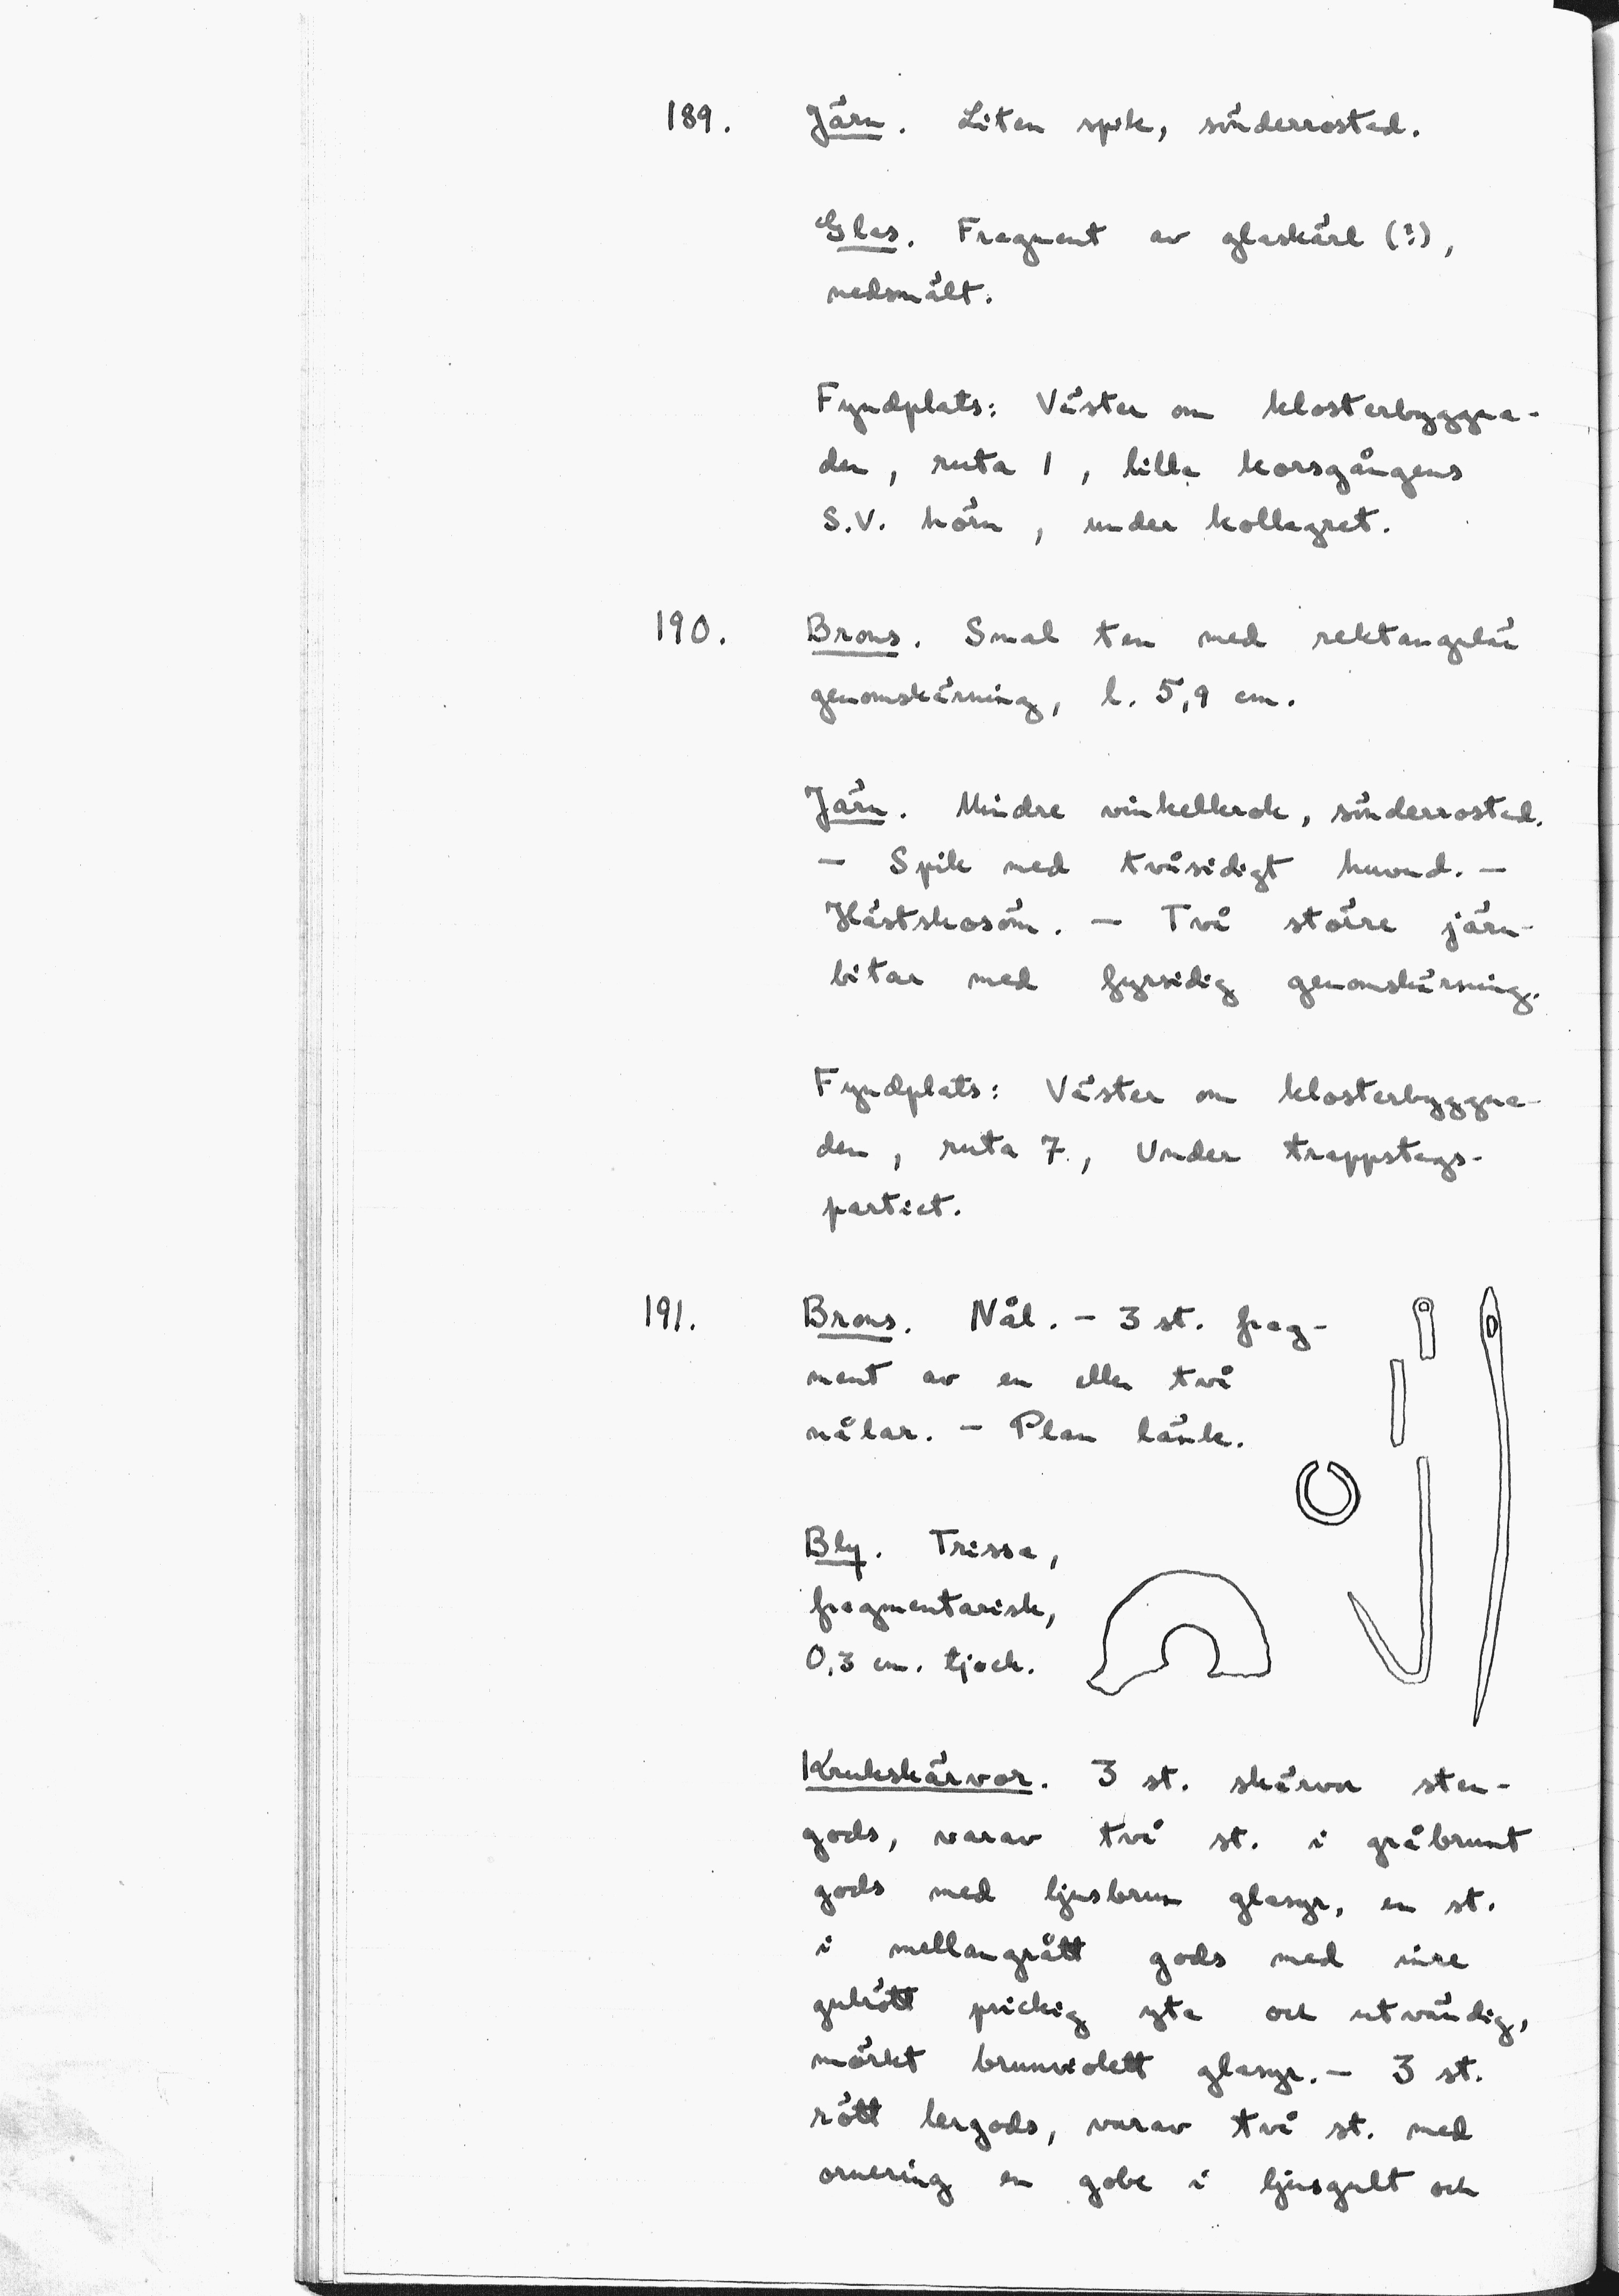 189. Järn. Liten spik, sönderrostad.
Glas. Fragment av glaskärl (?),
nedsmält.
Fyndplats: Väster om klosterbyggna-
den, ruta 1, lilla korsgångens
S.V. hörn, under kollagret.
190. Brons. Smal ten med rektangulär
genomskärning, l. 5,9 cm.
Järn. Mindre vinkelkrok, sönderrostad.
— Spik med tvåsidigt huvud. —
Hästskosöm. — Två större järn-
bitar med fyrsidig genomskärning.
Fyndplats: Väster om klosterbyggna-
den, ruta 7, Under trappstegs-
partiet.
191. Brons. Nål. — 3 st. frag-
ment av en eller två
nålar. — Plan länk.
Bly. Trissa,
fragmentarisk,
0,3 cm. tjock.
Krukskärvor. 3 st. skärvor sten-
gods, varav två st. i gråbrunt
gods med ljusbrun glasyr, en st.
i mellangrått gods med inre
gulrött prickig yta och utvändig,
mörkt brunviolett glasyr. — 3 st.
rött lergods, varav två st. med
ornering en gobe i ljusgult och